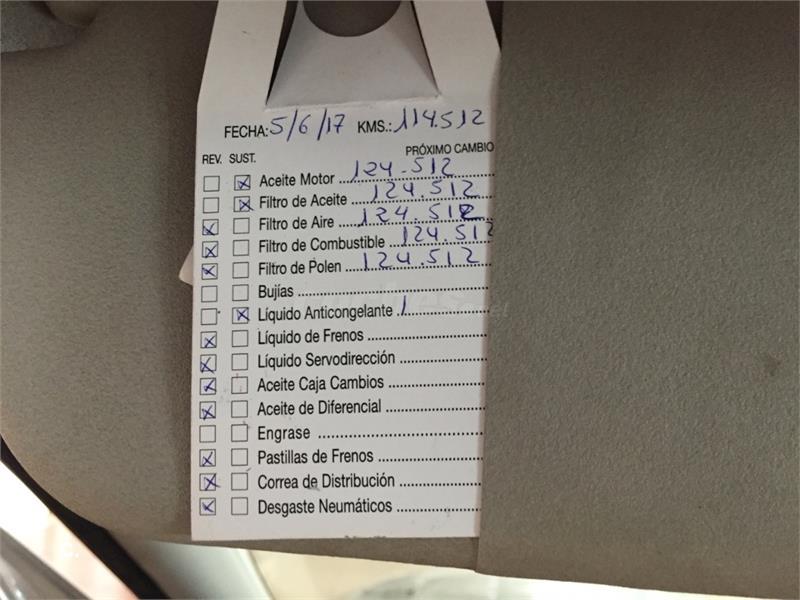 FECHA: 5/6/17 KMS.: 114.512
REV. SUST. PRÓXIMO CAMBIO
Aceite Motor 124.512
Filtro de Aceite 124.512
Filtro de Aire 124.512
Filtro de Combustible 124.512
Filtro de Polen 124.512
Bujías
Líquido Anticongelante 1
Líquido de Frenos
Líquido Servodirección
Aceite Caja Cambios
Aceite de Diferencial
Engrase
Pastillas de Frenos
Correa de Distribución
Desgaste Neumáticos